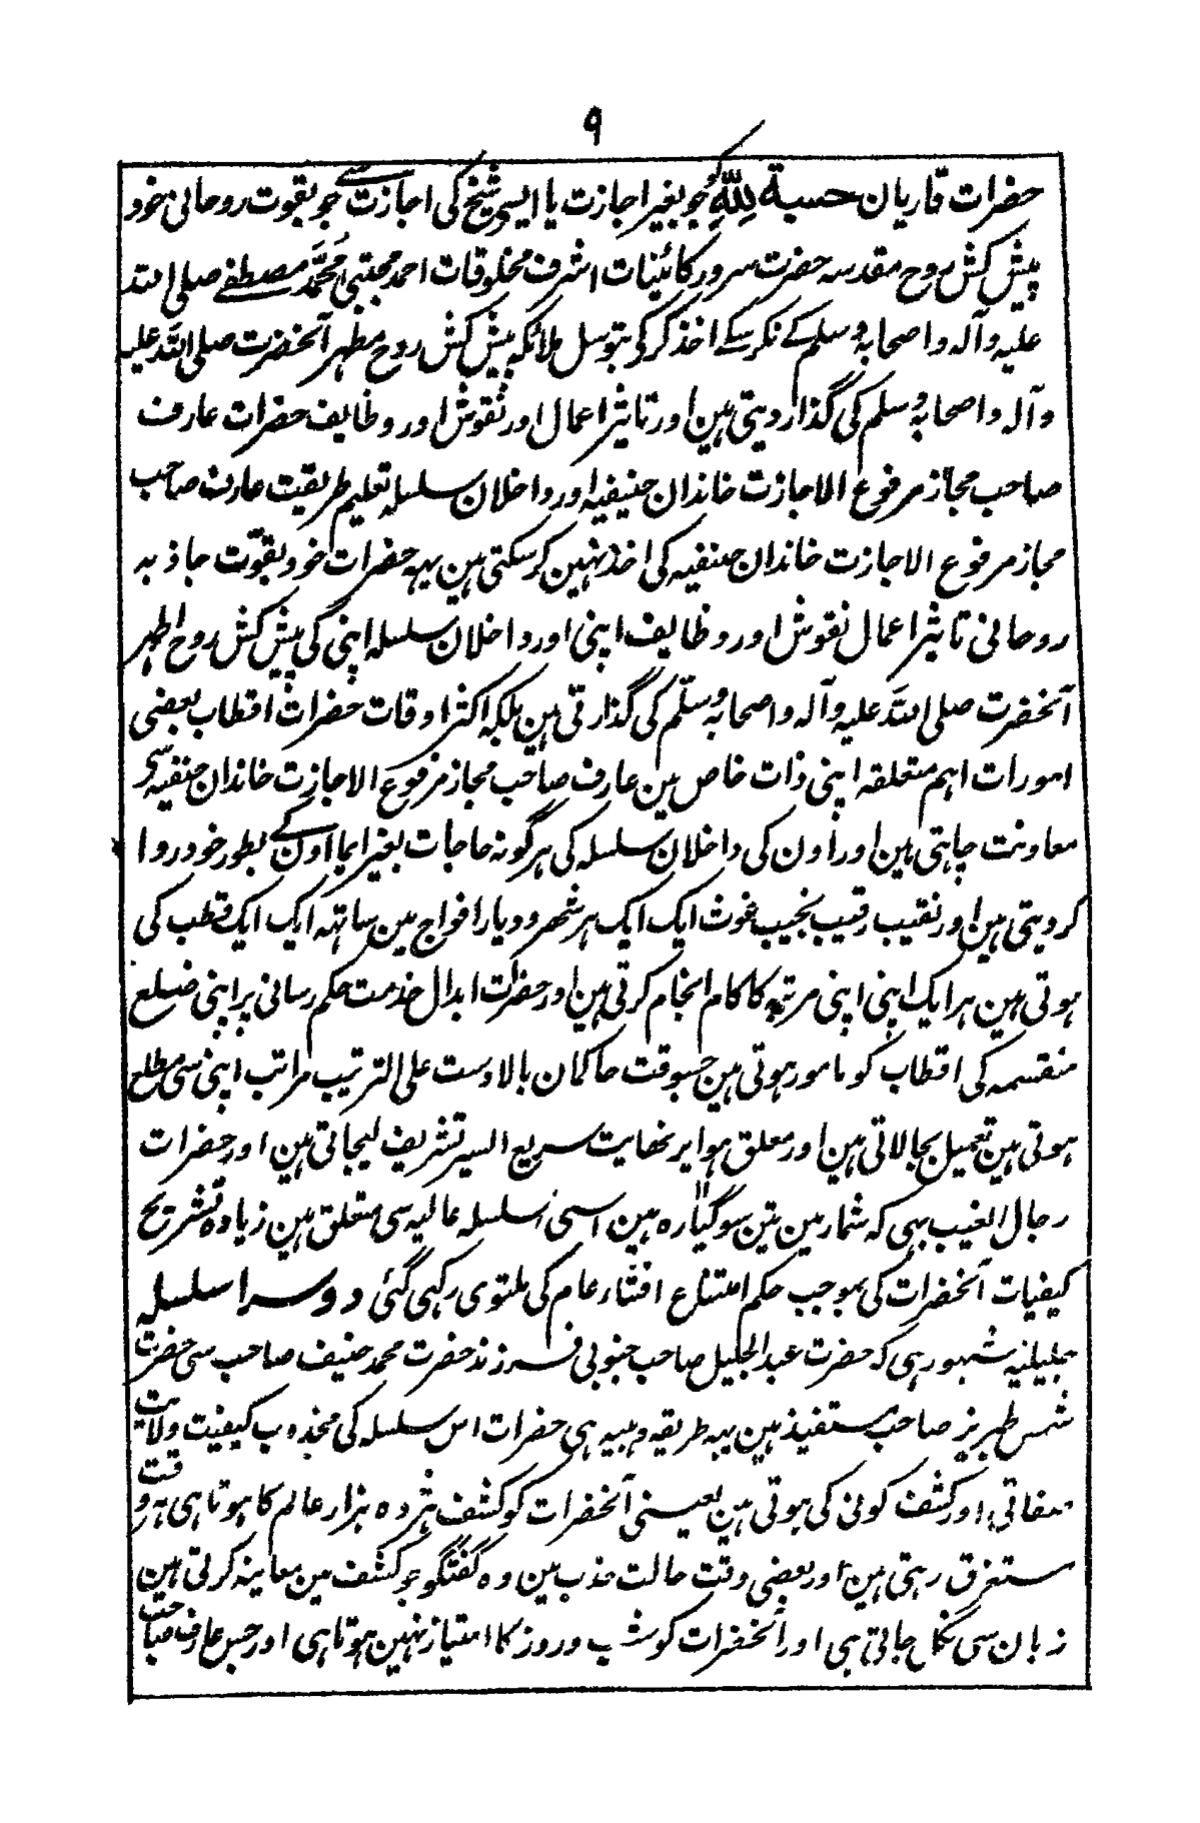 ۹
حضرات قاریان حسبۃ للہِ کو جو بغیر اجازت یا ایسی شیخ کی اجازت سے جو بقوت روحانی خود
پیش کش روح مقدسہ حضرت سرور کائینات اشرف مخلوقات احمد مجتبیٰ مُحَمَّد مصطفےٰ صلی اللہ
علیہ وآلہ واصحابہ وسلم کے نکر سکے اخذ کر کی بتوسل ملائکہ پیش کش روح مطہر آنحضرت صلی اللہ علیہ
وآلہ واصحابہ وسلم کی گذار دیتی ہین اور تاثیر اعمال اور نقوش اور وظایف حضرات عارف
صاحب مجاز مرفوع الاجازت خاندان حنیفیہ اور داخلان سلسلہ تعلیم طریقیت عارف صاحب
مجاز مرفوع الاجازت خاندان حنفیہ کی اخذ نہین کر سکتی ہین یہہ حضرات خود بقوّت جاذبہ
روحانی تاثیر اعمال نقوش اور وظایف اپنی اور داخلان سلسلہ اپنی کی پیش کش روح اطہر
آنحضرت صلی اللہ علیہ وآلہ واصحابہ وسلّم کی گذارتی ہین بلکہ اکثر اوقات حضرات اقطاب بعضی
امورات اہم متعلقہ اپنی ذات خاص مین عارف صاحب مجاز مرفوع الاجازت خاندان حنفیہ سی
معاونت چاہتی ہین اور اون کی داخلان سلسلہ کی ہر گونہ حاجات بغیر ایما اون کے بطور خود روا
کر دیتی ہین اور نقیب رقیب نجیب غوث ایک ایک ہر شہر و دیار افواج مین ساتہہ ایک ایک قطب کی
ہوتی ہین ہر ایک اپنی اپنی مرتبہ کا کام انجام کرتی ہین اور حضرات ابدال خدمت حکم رسانی پر اپنی ضلع
منقسمہ کی اقطاب کو مامور ہوتی ہین جسوقت حاکمان بالادست علی الترتیب مراتب اپنی سی مطلع
ہوتی ہین تعمیل بجا لاتی ہین اور معلق ہوا پر نہایت سریع السیر تشریف لیجاتی ہین اور حضرات
رجال الغیب بہی کہ شمار مین تین سو گیارہ ہین اسی سلسلہ عالیہ سی متعلق ہین زیادہ تشریح
کیفیات آنحضرات کی بموجب حکم امتناع افشاء عام کی ملتوی رکہی گئی دوسرا سلسلہ
جلیلیہ مشہور ہی کہ حضرت عبد الجلیل صاحب جنوبی فرزند حضرت محمد حنیف صاحب سی حضرت
شمس طبریز صاحب مستفیذ ہین یہہ طریقہ وہبیہ ہی حضرات اس سلسلہ کی مجذوب کیفیت ولایت
صفاتی اور کشف کونی کی ہوتی ہین یعنی آنحضرات کو کشف ہژدہ ہزار عالم کا ہوتا ہی ہر وقت
مستغرق رہتی ہین اور بعضی وقت حالت جذب مین وہ گفتگو جو کشف مین معاینہ کرتی ہین
زبان سی نکل جاتی ہی اور آنحضرات کو شب و روز کا امتیاز نہین ہوتا ہی اور جس عارف صاحب